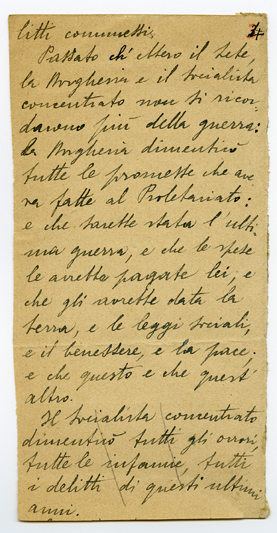 litti commessi.
Passato ch'ebbero il Lete,
la Borghesia e il socialista
concentrato non si ricor-
davano più della guerra:
la Borghesia dimenticò
tutte le promesse che ave
va fatte al Proletariato:
e che sarebbe stata l'ulti-
ma guerra, e che le spese
le avrebbe pagate lei, e
che gli avrebbe data la
terra, e le leggi sociali,
e il benessere, e la pace.
e che questo e che quest'
altro.
Il socialista concentrato
dimenticò tutti gli orrori,
tutte le infamie, tutti
i delitti di questi ultimi
anni.